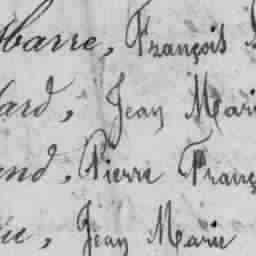 barre, François
ard, Jean Mari
end, Pierre Franç
ie, Jean Marie